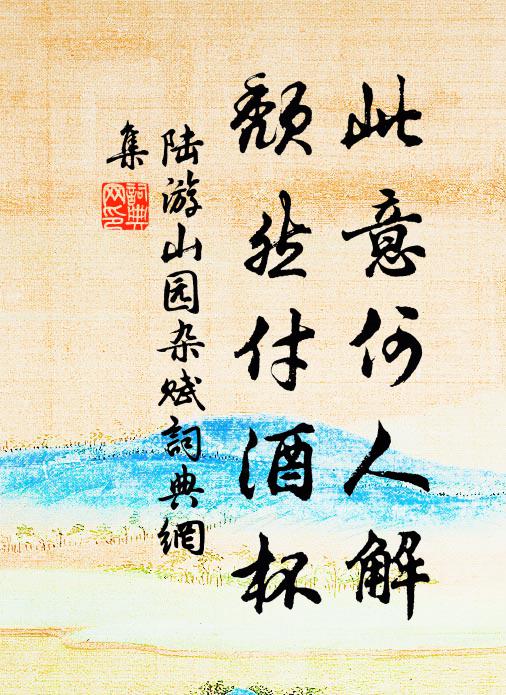 此意何人解
颓然付酒杯
陆游山园杂赋詞典網
集
詞典
网印